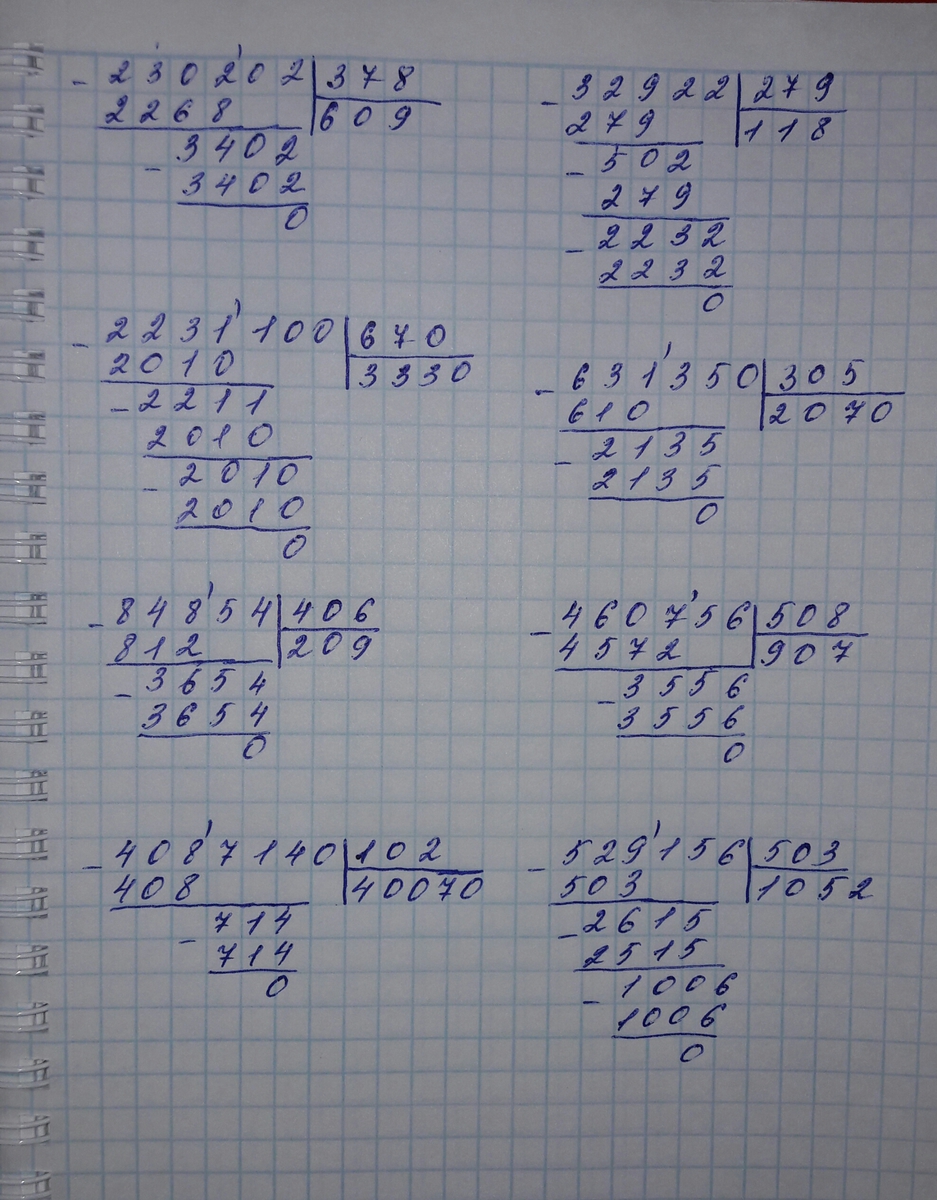 - 230202 | 378
2268 | 609
- 3402
3402
0
- 32922 | 279
279 | 118
- 502
279
- 2232
2232
0
- 2231100 | 670
2010 | 3330
- 2211
2010
- 2010
2010
0
- 631350 | 305
610 | 2070
- 2135
2135
0
- 84854 | 406
812 | 209
- 3654
3654
0
- 460756 | 508
4572 | 907
- 3556
3556
0
- 4087140 | 102
408 | 40070
- 714
714
0
- 529156 | 503
503 | 1052
- 2615
2515
- 1006
1006
0